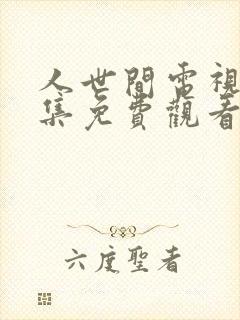 人世間電視
集免費觀看
六度聖者